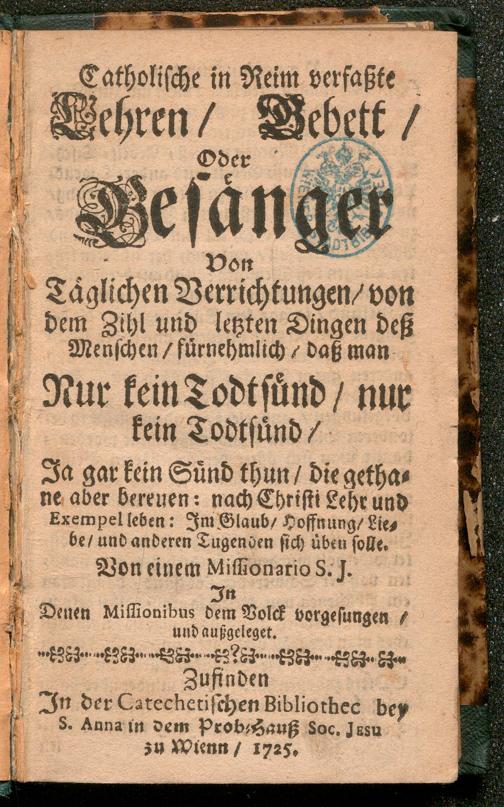 Catholische in Reim verfaßte
Lehren / Gebett /
Oder
Gesänger
Von
Täglichen Verrichtungen / von
dem Zihl und letzten Dingen deß
Menschen / fürnehmlich / daß man
Nur kein Todtsünd / nur
kein Todtsünd /
Ja gar kein Sünd thun / die getha-
ne aber bereuen: nach Christi Lehr und
Exempel leben: Jm Glaub / Hoffnung / Lie-
be / und anderen Tugenden sich üben solle.
Von einem Missionario S. J.
Jn
Denen Missionibus dem Volck vorgesungen /
und außgeleget.
Zufinden
Jn der Catechetischen Bibliothec bey
S. Anna in dem Prob-Hauß Soc. Jesu
zu Wienn / 1725.